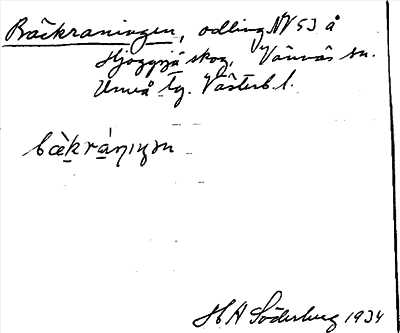 Bäckraningen, odling NV 53 å
Hjoggsjö skog, Vännäs sn.
Umeå tg. Västerb l.
bäkrániŋən
H A Söderberg 1934